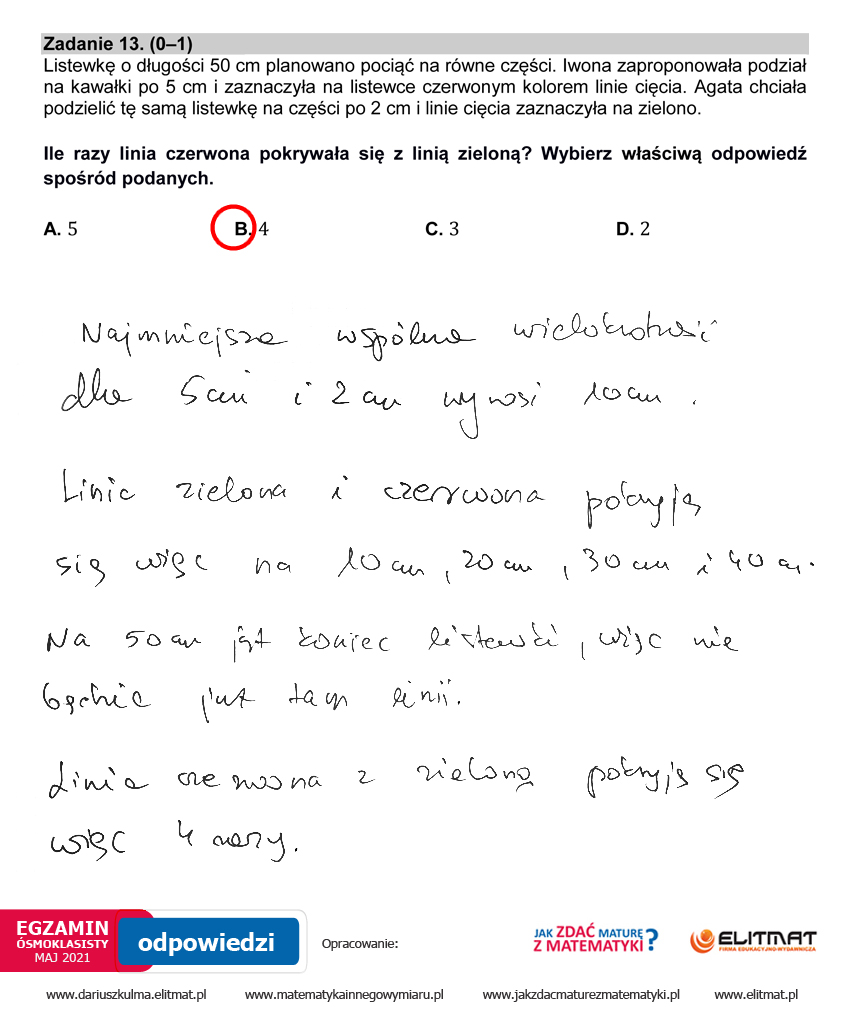 Zadanie 13. (0–1)
Listewkę o długości 50 cm planowano pociąć na równe części. Iwona zaproponowała podział
na kawałki po 5 cm i zaznaczyła na listewce czerwonym kolorem linie cięcia. Agata chciała
podzielić tę samą listewkę na części po 2 cm i linie cięcia zaznaczyła na zielono.
Ile razy linia czerwona pokrywała się z linią zieloną? Wybierz właściwą odpowiedź
spośród podanych.
A. 5 B. 4 C. 3 D. 2
Najmniejsza wspólna wielokrotność
dla 5 cm i 2 cm wynosi 10 cm.
Linia zielona i czerwona pokryją
się więc na 10 cm, 20 cm, 30 cm i 40 cm.
Na 50 cm jest koniec listewki, więc nie
będzie już tam linii.
Linia czerwona z zieloną pokryją się
więc 4 razy.
EGZAMIN
ÓSMOKLASISTY
MAJ 2021
odpowiedzi
Opracowanie:
JAK ZDAĆ MATURĘ
Z MATEMATYKI?
ELITMAT
FIRMA EDUKACYJNO-WYDAWNICZA
www.dariuszkulma.elitmat.pl www.matematykainnegowymiaru.pl www.jakzdacmaturezmatematyki.pl www.elitmat.pl